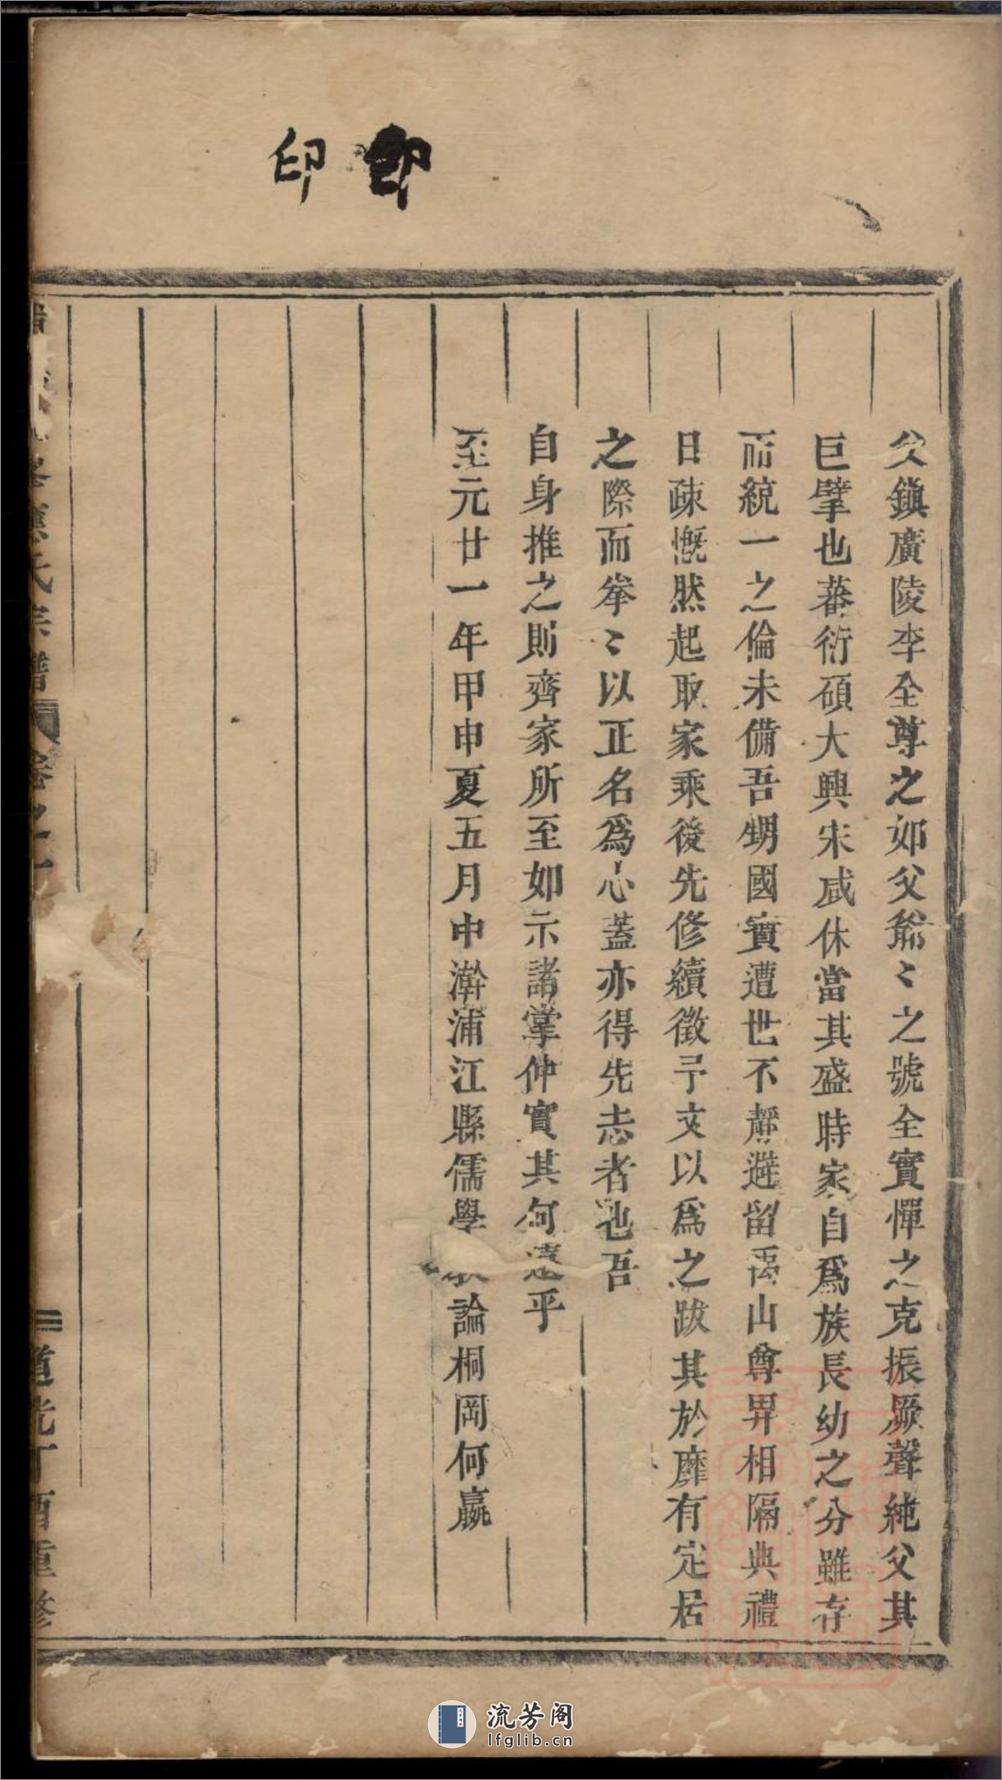 印 印
父鎮廣陵李全尊之如父爺〻之號全實憚之克振厥聲純父其
巨擘也蕃衍碩大興宋咸休當其盛時家自爲族長幼之分雖存
而統一之倫未備吾甥國賓遭世不靜避留禹山尊畀相隔典禮
日疎慨然起取家乘後先修續徵予文以爲之跋其於靡有定居
之際而拳〻以正名爲心蓋亦得先志者也吾
自身推之則齊家所至如示諸掌仲實其何遠乎
至元廿一年甲申夏五月中澣浦江縣儒學論桐岡何嬴
氏宗譜 卷之一 道光丁酉重修
流芳阁
lfglib.cn